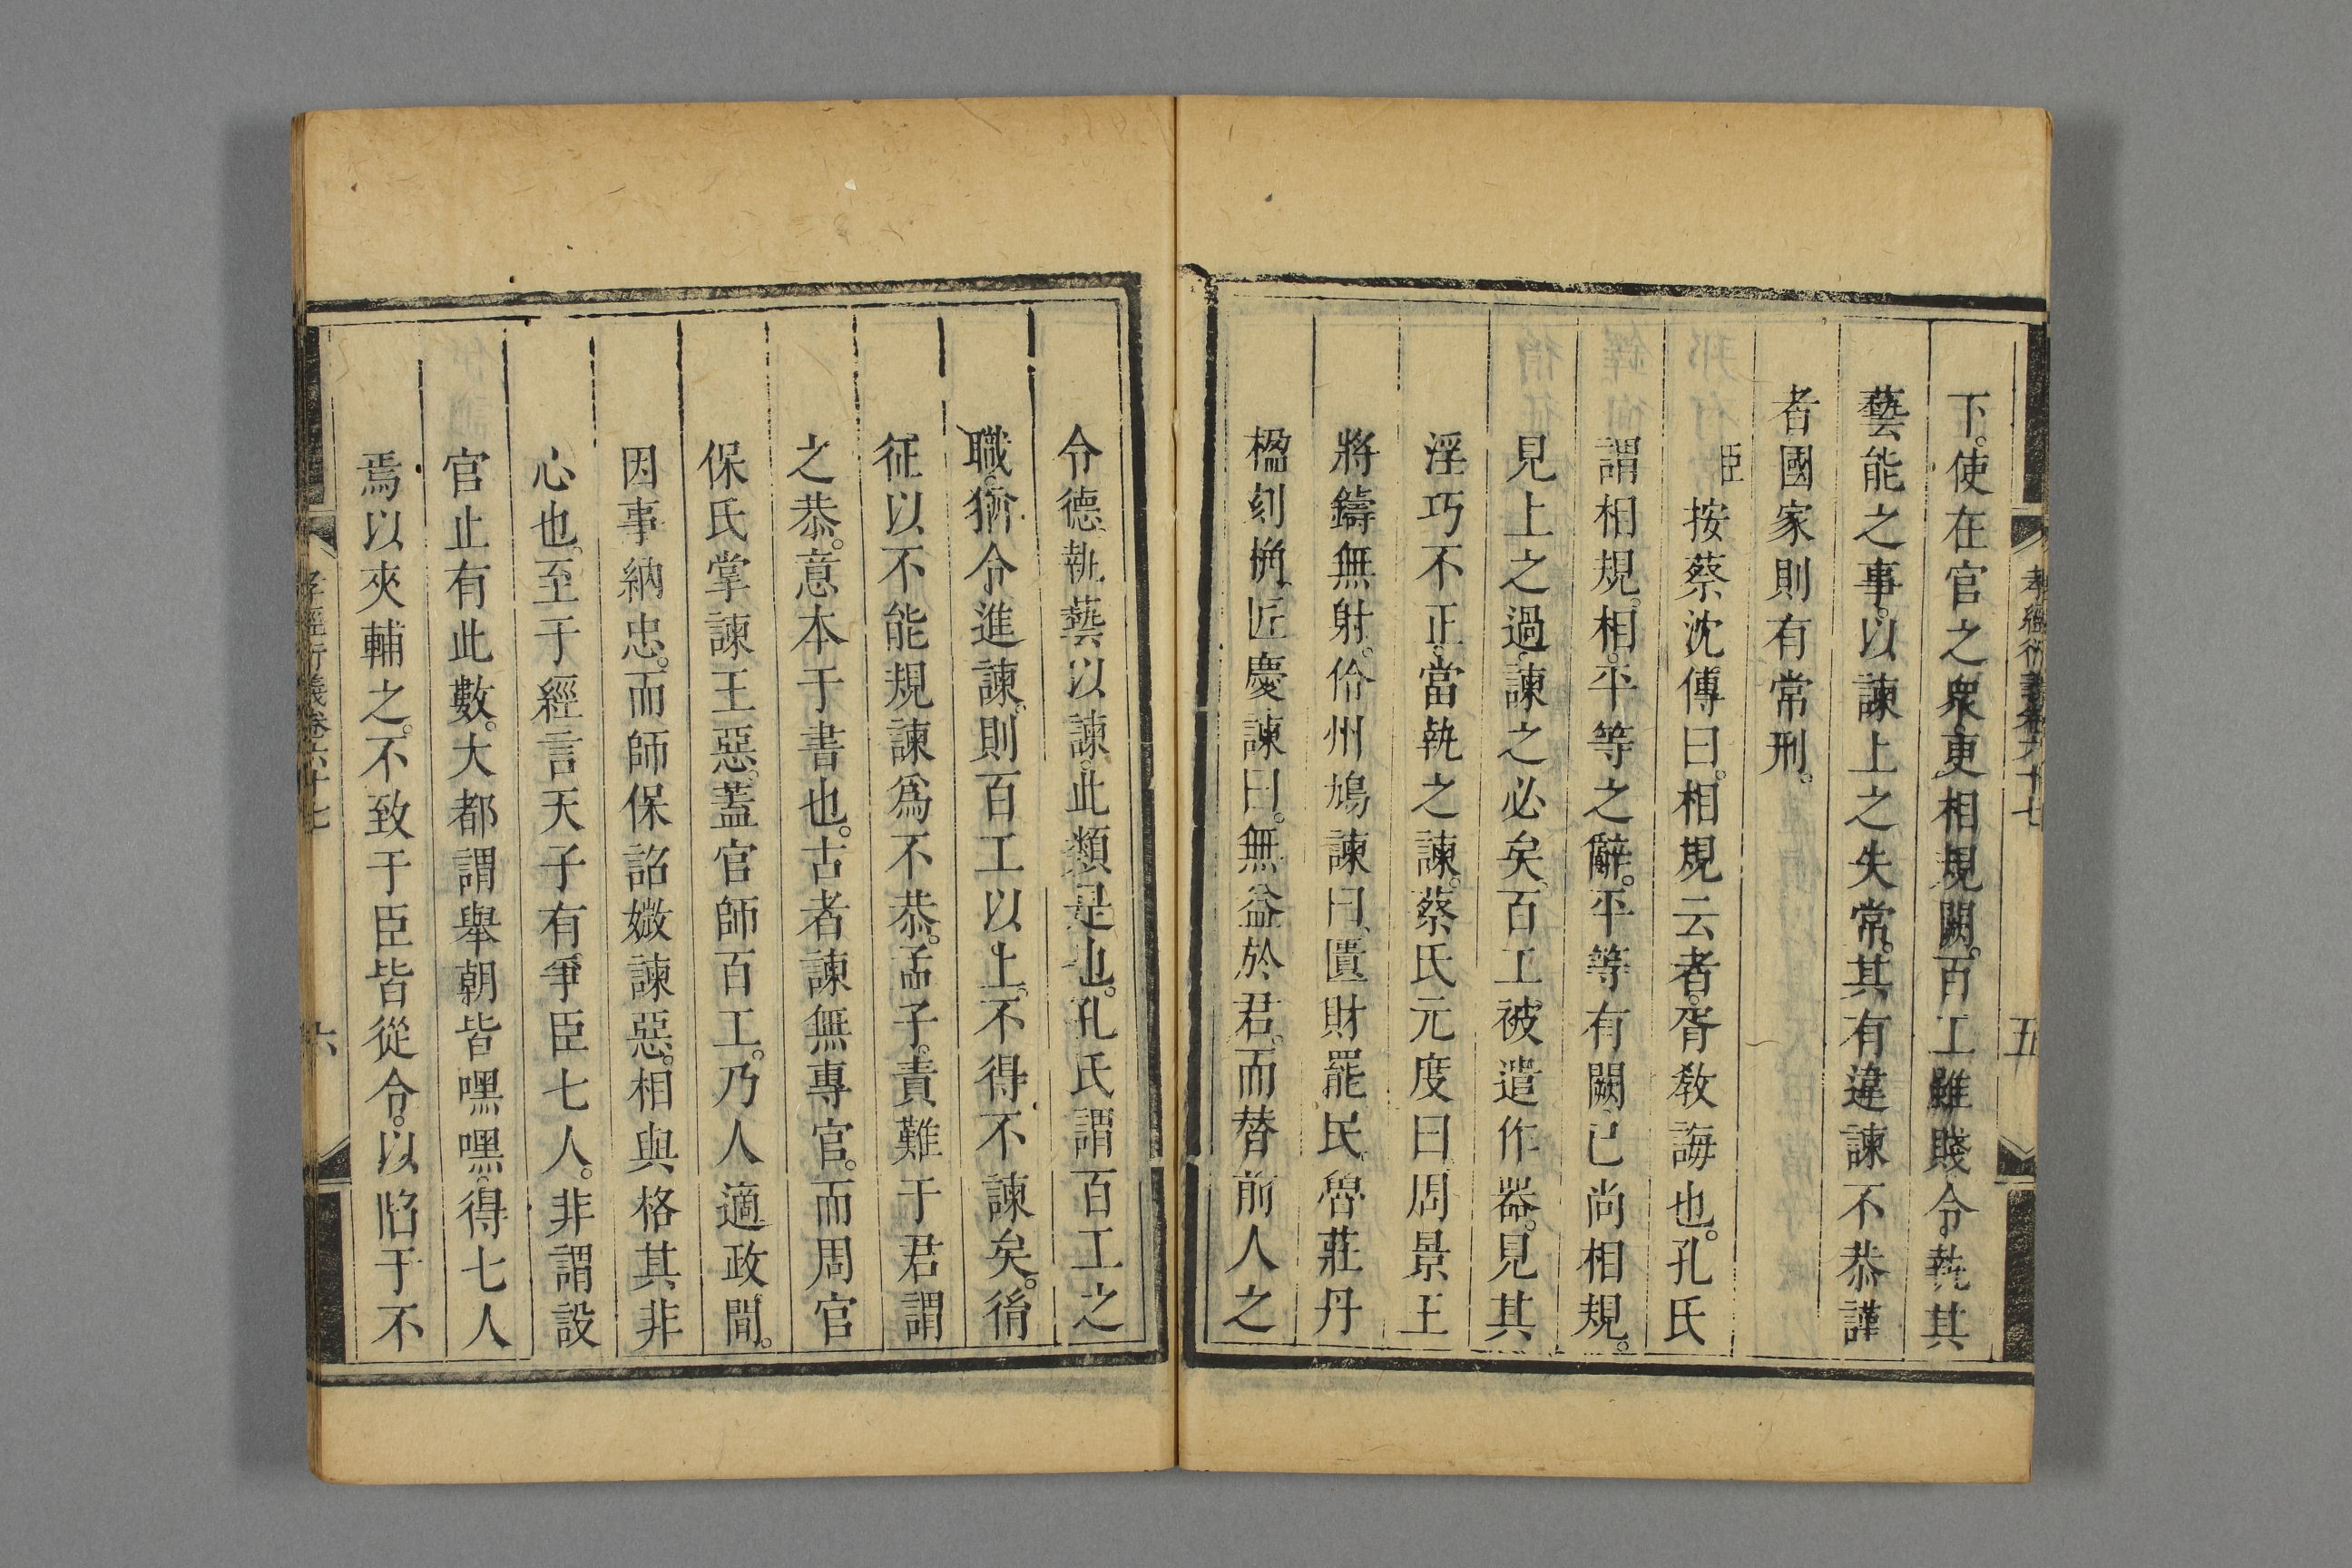 孝經衍義卷六十七
五
下。使在官之衆。更相規闕。百工雖賤。令執其
藝能之事。以諫上之失常。其有違諫不恭謹
者國家則有常刑。
臣按蔡沈傳曰。相規云者。胥教誨也。孔氏
謂相規。相平等之辭。平等有闕、已尚相規。
見上之過。諫之必矣。百工被遣作器。見其
淫巧不正。當執之諫。蔡氏元度曰。周景王
將鑄無射。伶州鳩諫曰、匱財罷民。魯莊丹
楹刻桷、匠慶諫曰。無益於君。而替前人之
令德、執藝以諫。此類是也。孔氏謂百工之
職。猶令進諫。則百工以上。不得不諫矣。脩
征以不能規諫爲不恭。孟子。責難于君謂
之恭。意本于書也。古者諫無專官。而周官
保氏掌諫王惡。蓋官師百工。乃人適政間。
因事納忠。而師保詔媺諫惡。相與格其非
心也。至于經言天子有爭臣七人。非謂設
官止有此數。大都謂舉朝皆嘿嘿。得七人
焉以夾輔之。不致于臣皆從令。以陷于不
孝經衍義卷六十七
六